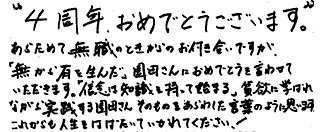 "4周年、おめでとうございます。"
あらためて、無職のときからのお付き合いですが、
「無から有を生んだ」園田さんにおめでとうを言わせて
いただきます。信念は知識を持って始まる。貪欲に学ばれ
ながら実践する園田さんそのものをあらわした言葉のように思います
これからも人生をはばたいていかれてください！